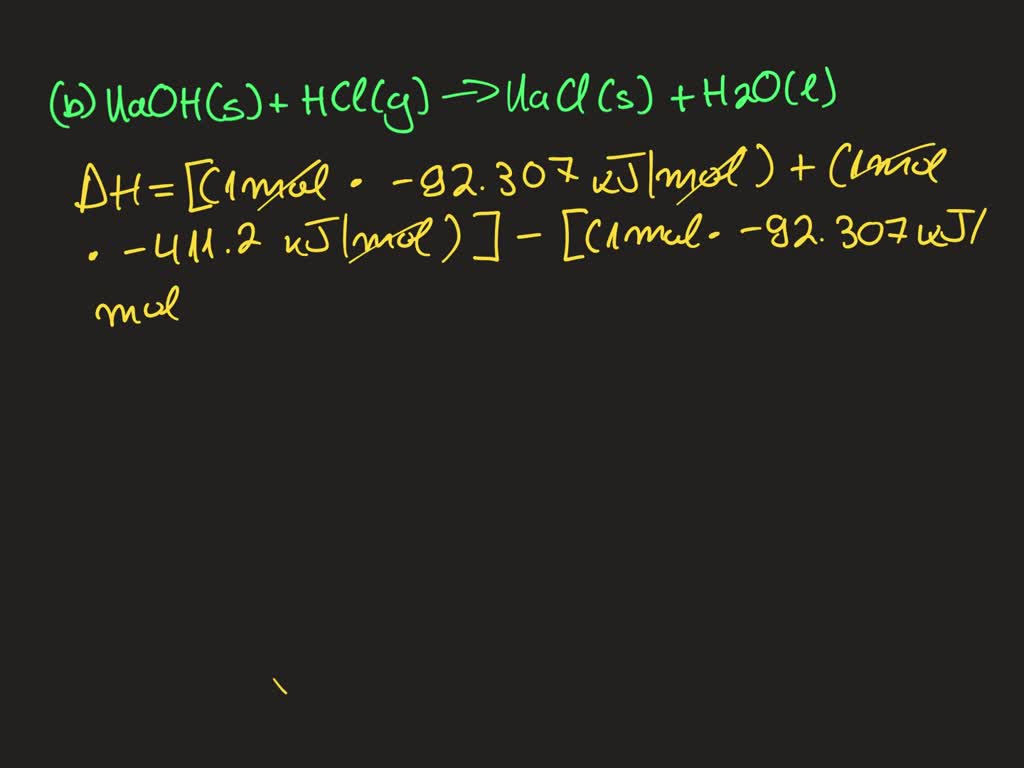 (b) NaOH(s) + HCl(g) → NaCl(s) + H2O(l)
ΔH = [(1mol · -92.307 kJ/mol) + (1mol
· -411.2 kJ/mol)] - [(1mol · -92.307 kJ/
mol